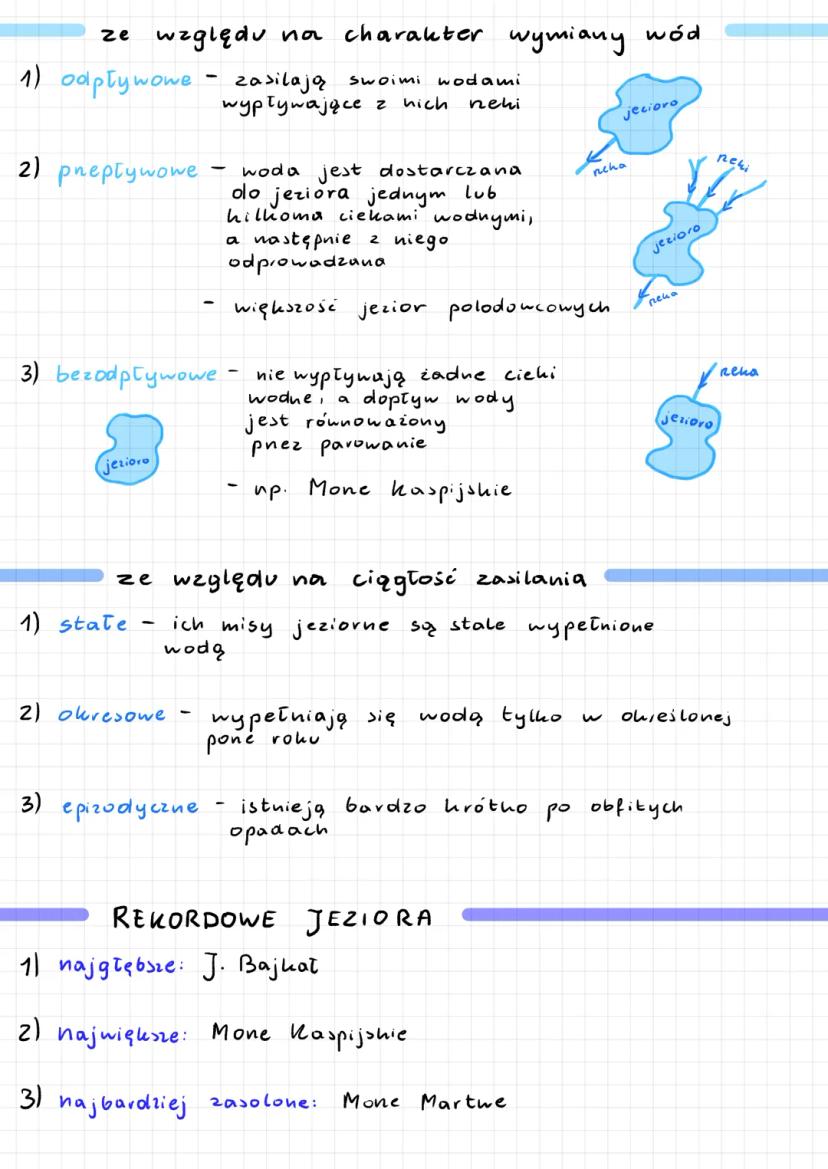 ze względu na charakter wymiany wód
1) odpływowe - zasilają swoimi wodami
wypływające z nich rzeki
jezioro
rzeka
2) przepływowe - woda jest dostarczana
do jeziora jednym lub
kilkoma ciekami wodnymi,
a następnie z niego
odprowadzana
rzeki
jezioro
rzeka
- większość jezior polodowcowych
3) bezodpływowe - nie wypływają żadne cieki
wodne, a dopływ wody
jest równoważony
przez parowanie
jezioro
rzeka
jezioro
- np. Morze Kaspijskie
ze względu na ciągłość zasilania
1) stałe - ich misy jeziorne są stale wypełnione
wodą
2) okresowe - wypełniają się wodą tylko w określonej
porze roku
3) epizodyczne - istnieją bardzo krótko po obfitych
opadach
REKORDOWE JEZIORA
1) najgłębsze: J. Bajkał
2) największe: Morze Kaspijskie
3) najbardziej zasolone: Morze Martwe